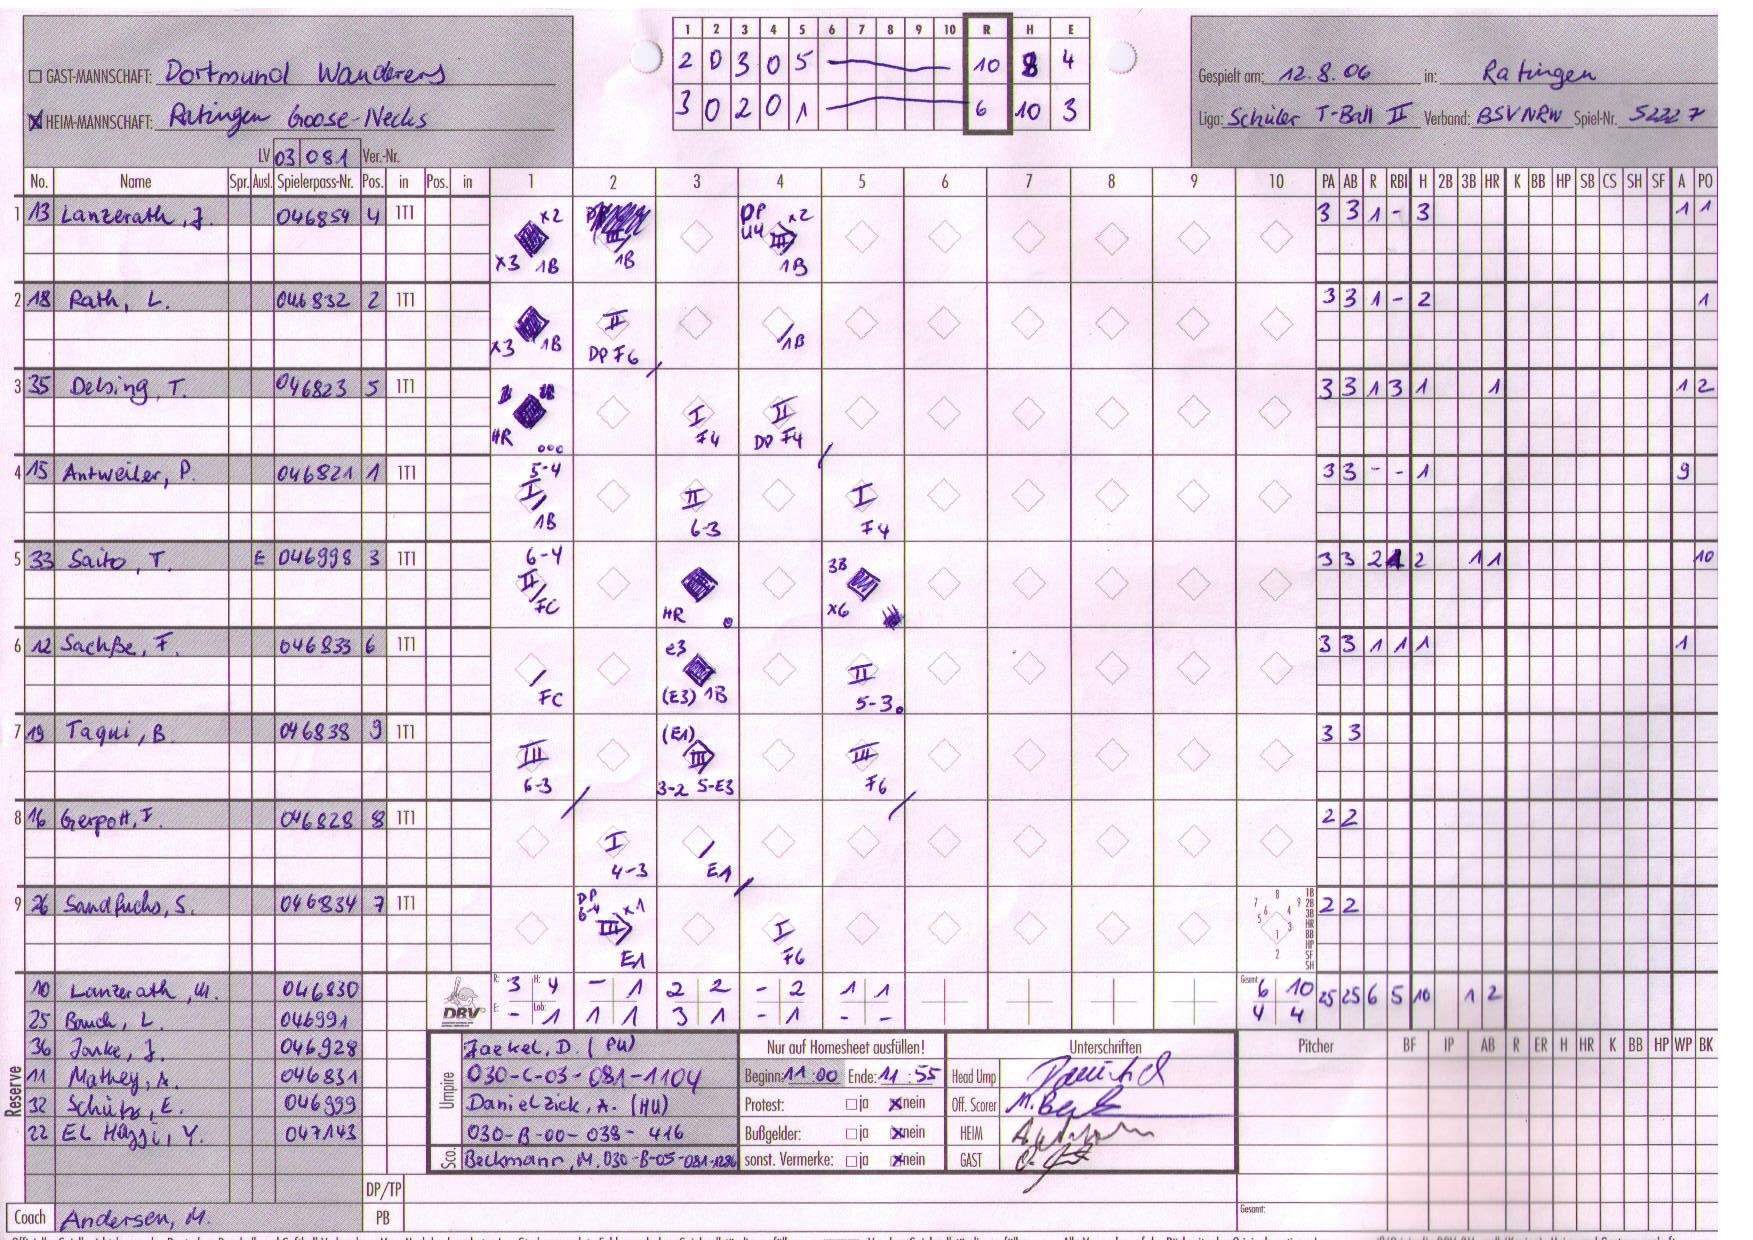 1 2 3 4 5 6 7 8 9 10 R H E
□ GAST-MANNSCHAFT: Dortmund Wanderers 2 0 3 0 5 10 8 4 Gespielt am: 12.8.06 in: Ratingen
☒ HEIM-MANNSCHAFT: Ratingen Goose-Necks 3 0 2 0 1 6 10 3 Liga: Schüler T-Ball II Verband: BSVNRW Spiel-Nr. 52227
LV 03 081 Ver.-Nr.
No. Name Spr. Ausl. Spielerpass-Nr. Pos. in Pos. in 1 2 3 4 5 6 7 8 9 10 PA AB R RBI H 2B 3B HR K BB HP SB CS SH SF A PO
1 13 Lanzerath, J. 046854 4 1T1 x2 x3 1B 1B DP U4 x2 III 1B 3 3 1 - 3 1 1
2 18 Rath, L. 046832 2 1T1 x3 1B II DP F6 1B 3 3 1 - 2 1
3 35 Delsing, T. 046823 5 1T1 HR I F4 II DP F4 3 3 1 3 1 1 1 2
4 15 Antweiler, P. 046821 1 1T1 5-4 I 1B II 6-3 I F4 3 3 - - 1 9
5 33 Saito, T. E 046998 3 1T1 6-4 II FC HR 3B x6 3 3 2 1 2 1 1 10
6 12 Sachße, F. 046833 6 1T1 FC e3 (E3) 1B II 5-3 3 3 1 1 1 1
7 19 Taqui, B. 046838 9 1T1 III 6-3 (E1) III 3-2 5-E3 III F6 3 3
8 16 Gerpott, F. 046828 8 1T1 I 4-3 E1 2 2
9 26 Sandfuchs, S. 046834 7 1T1 DP 6-4 x1 III E1 I F6 2 2
10 Lanzerath, M. 046830 R: 3 H: 4 - 1 2 2 - 2 1 1 Gesamt 6 10 25 25 6 5 10 1 2
25 Bauch, L. 046991 DBV E: - Lob: 1 1 1 3 1 - 1 - - 4 4
36 Janke, J. 046928 Jaekel, D. (PU) Nur auf Homesheet ausfüllen! Unterschriften Pitcher BF IP AB R ER H HR K BB HP WP BK
11 Mathey, A. 046831 030-C-03-081-1104 Beginn: 11:00 Ende: 11:55 Head Ump
Reserve 32 Schütz, E. 046999 Umpire Danielzick, A. (HU) Protest: □ ja ☒ nein Off. Scorer M. Beck
22 EL Hazzi, Y. 047143 030-B-00-038-416 Bußgelder: □ ja ☒ nein HEIM
Sco. Beckmann, M. 030-B-05-081-1286 sonst. Vermerke: □ ja ☒ nein GAST
DP/TP
Coach Andersen, M. PB Gesamt: